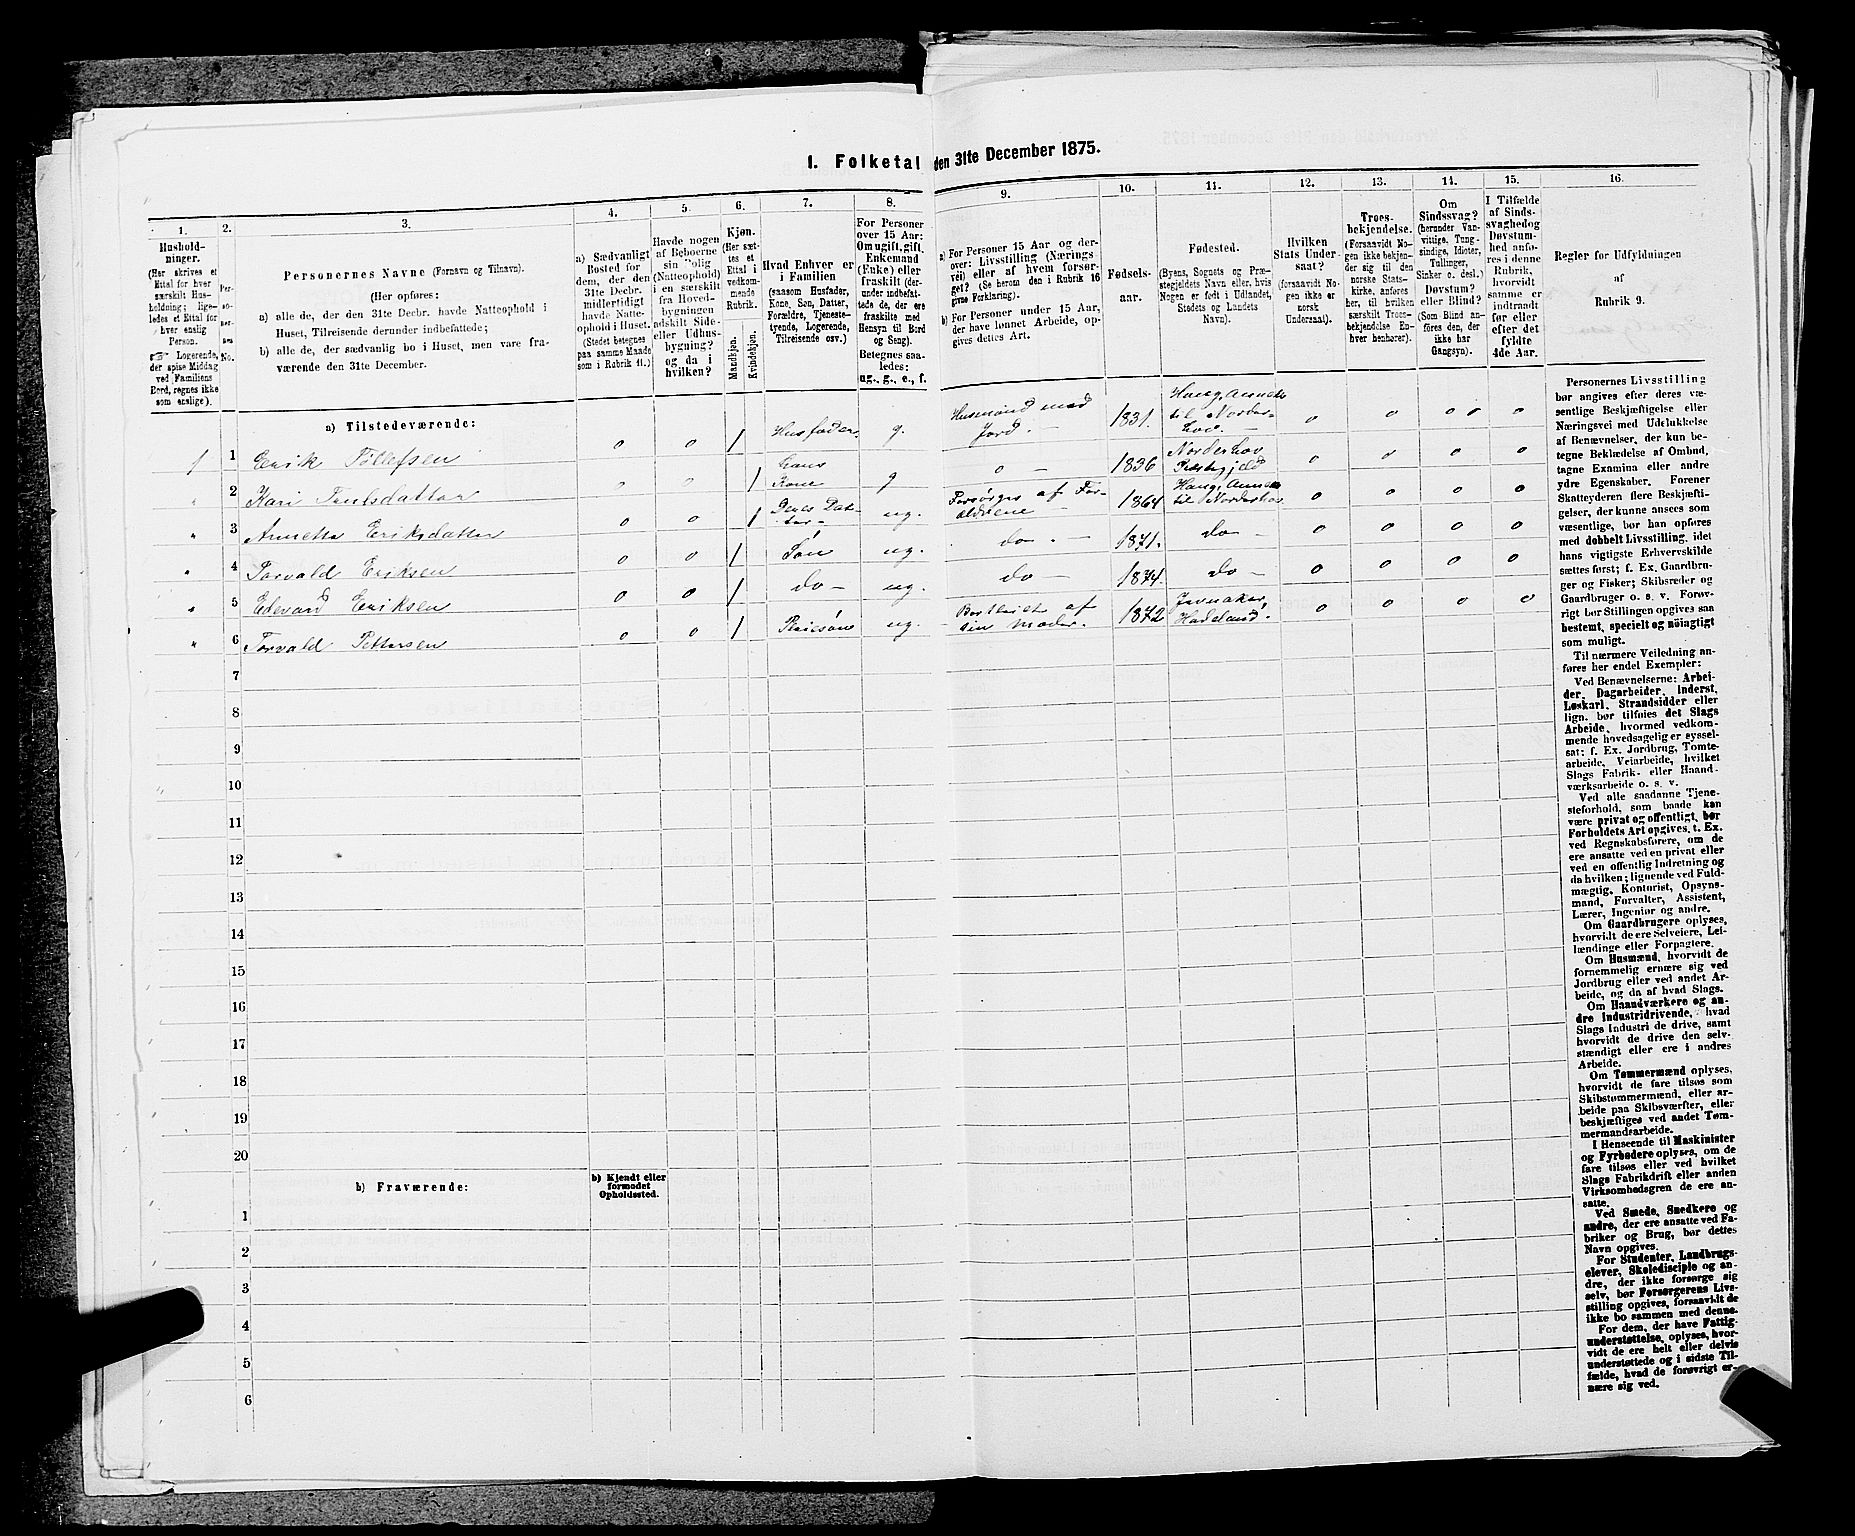 1. Folketal den 31te December 1875.
1.
Hushold-
ninger.
(Her skrives et
Ettal for hver
særskilt Hus-
holdning; lige-
ledes et Ettal for
hver enslig
Person.
☞ Logerende,
der spise Middag
ved Familiens
Bord, regnes ikke
som enslige).
2.
Per-
so-
ner-
nes
No.
3.
Personernes Navne (Fornavn og Tilnavn).
(Her opføres:
a) alle de, der den 31te Decbr. havde Natteophold i
Huset, Tilreisende derunder indbefattede;
b) alle de, der sædvanlig bo i Huset, men vare fra-
værende den 31te December.
4.
a) Sædvanligt
Bosted for
dem, der den
31te Decbr.
midlertidigt
havde Natte-
ophold i Huset.
(Stedet betegnes
paa samme Maade
som i Rubrik 11.)
5.
Havde nogen
af Beboerne
sin Bolig
(Natteophold)
i en særskilt
fra Hoved-
bygningen
adskilt Side-
eller Udhus-
bygning?
og da i
hvilken?
6.
Kjøn.
(Her sæt-
tes et
Ettal i
vedkom-
mende
Rubrik.
Mandkjøn.
Kvindekjøn.
7.
Hvad Enhver er
i Familien
(saasom Husfader,
Kone, Søn, Datter,
Forældre, Tjeneste-
tyende, Logerende,
Tilreisende osv.)
8.
For Personer
over 15 Aar:
Om ugift, gift,
Enkemand
(Enke) eller
fraskilt (der-
under indbefat-
tede de, der ere
fraskilte med
Hensyn til Bord
og Seng).
Betegnes saa-
ledes:
ug., g., e., f.
9.
a) For Personer 15 Aar og der-
over: Livsstilling (Nærings-
vei) eller af hvem forsør-
get? (Se herom den i Rubrik 16
givne Forklaring).
b) For Personer under 15 Aar,
der have lønnet Arbeide, op-
gives dettes Art.
10.
Fødsels-
aar.
11.
Fødested.
(Byens, Sognets og Præ-
stegjeldets Navn eller, hvis
Nogen er født i Udlandet,
Stedets og Landets
Navn).
12.
Hvilken
Stats Under-
saat?
(forsaavidt No-
gen ikke er
norsk
Undersaat).
13.
Troes-
bekjendelse.
(Forsaavidt No-
gen ikke bekjen-
der sig til den
norske Stats-
kirke, anføres
her, til hvilken
særskilt Troes-
bekjendelse En-
hver henhører).
14.
Om
Sindssvag?
(herunder Van-
vittige, Tung-
sindige, Idioter,
Tullinger,
Sinker o. desl.)
Døvstum?
eller Blind?
(Som Blind an-
føres den, der
ikke har
Gangsyn).
15.
I Tilfælde
af Sinds-
svaghed og
Døvstum-
hed anfø-
res i denne
Rubrik,
hvorvidt
samme er
indtraadt
før eller
efter det
fyldte
4de Aar.
16.
Regler for Udfyldningen
af
Rubrik 9.
a) Tilstedeværende:
1 1 Erik Tollefsen o o 1 Husfader. g. Husmand med Jord. 1831. Haug, Annex til Norderhov. o o o o
" 2 Kari Trulsdatter o o 1 hans Kone g o 1836 Norderhov Præstegjeld o o o o
" 3 Annette Eriksdatter o o 1 Deres Dat-ter ug. Forsørges af For-ældrene 1864 Haug, Annex til Norderhov o o o o
" 4 Torvald Eriksen o o 1 Søn ug. do 1871. do o o o o
" 5 Edevard Eriksen o o 1 do ug. do 1874. do o o o o
" 6 Torvald Pettersen o o 1 Pleiesøn ug. af sin Moder. 1872 Jevnaker, Hadeland. o o o o
7
8
9
10
11
12
13
14
15
16
17
18
19
20
b) Fraværende:
b) Kjendt eller
formodet
Opholdssted.
1
2
3
4
5
6
Personernes Livsstilling
bør angives efter deres væ-
sentlige Beskjæftigelse eller
Næringsvei med Udelukkelse
af Benævnelser, der kun be-
tegne Beklædelse af Ombud,
tagne Examina eller andre
ydre Egenskaber. Forener
Skatteyderen flere Beskjæfti-
gelser, der kunne ansees som
væsentlige, bør han opføres
med dobbelt Livsstilling, idet
hans vigtigste Erhvervskilde
sættes først; f. Ex. Gaardbru-
ger og Fisker; Skibsreder og
Gaardbruger o. s. v. Forøv-
rigt bør Stillingen opgives saa
bestemt, specielt og nøiagtigt
som muligt.
Til nærmere Veiledning an-
føres her endel Exempler:
Ved Benævnelserne: Arbei-
der, Dagarbeider, Inderst,
Løskarl, Strandsidder eller
lign. bør tilføies det Slags
Arbeide, hvormed vedkom-
mende hovedsagelig er syssel-
sat; f. Ex. Jordbrug, Tomte-
arbeide, Veiarbeide, hvilket
Slags Fabrik- eller Haand-
værksarbeide o. s. v.
Ved alle saadanne Tjene-
steforhold, som baade kan
være privat og offentligt, bør
Forholdets Art opgives, t. Ex.
ved Regnskabsførere, om de
ere ansatte ved en privat eller
ved en offentlig Indretning og
da hvilken; lignende ved Fuld-
mægtig, Kontorist, Opsyns-
mand, Forvalter, Assistent,
Lærer, Ingeniør og andre.
Om Gaardbrugere oplyses,
hvorvidt de ere Selveiere, Lei-
lændinge eller Forpagtere.
Om Husmænd, hvorvidt de
fornemmelig ernære sig ved
Jordbrug eller ved andet Ar-
beide, og da af hvad Slags.
Om Haandværkere og an-
dre Industridrivende, hvad
Slags Industri de drive, samt
hvorvidt de drive den selv-
stændigt eller ere i andres
Arbeide.
Om Tømmermænd oplyses,
hvorvidt de fare tilsøs som
Skibstømmermænd, eller ar-
beide paa Skibsværfter, eller
beskjæftiges ved andet Tøm-
mermandsarbeide.
I Henseende til Maskinister
og Fyrbødere oplyses, om de
fare tilsøs eller ved hvilket
Slags Fabrikdrift eller anden
Virksomhedsgren de ere an-
satte.
Ved Smede, Snedkere og
andre, der ere ansatte ved Fa-
briker og Brug, bør dettes
Navn opgives.
For Studenter, Landbrugs-
elever, Skoledisciple og an-
dre, der ikke forsørge sig
selv, bør Forsørgerens Livs-
stilling opgives, forsaavidt de
ikke bo sammen med denne.
For dem, der have Fattig-
understøttelse, oplyses, hvor-
vidt de ere helt eller delvis
understøttede og i sidste Til-
fælde, hvad de forøvrigt er-
nære sig ved.